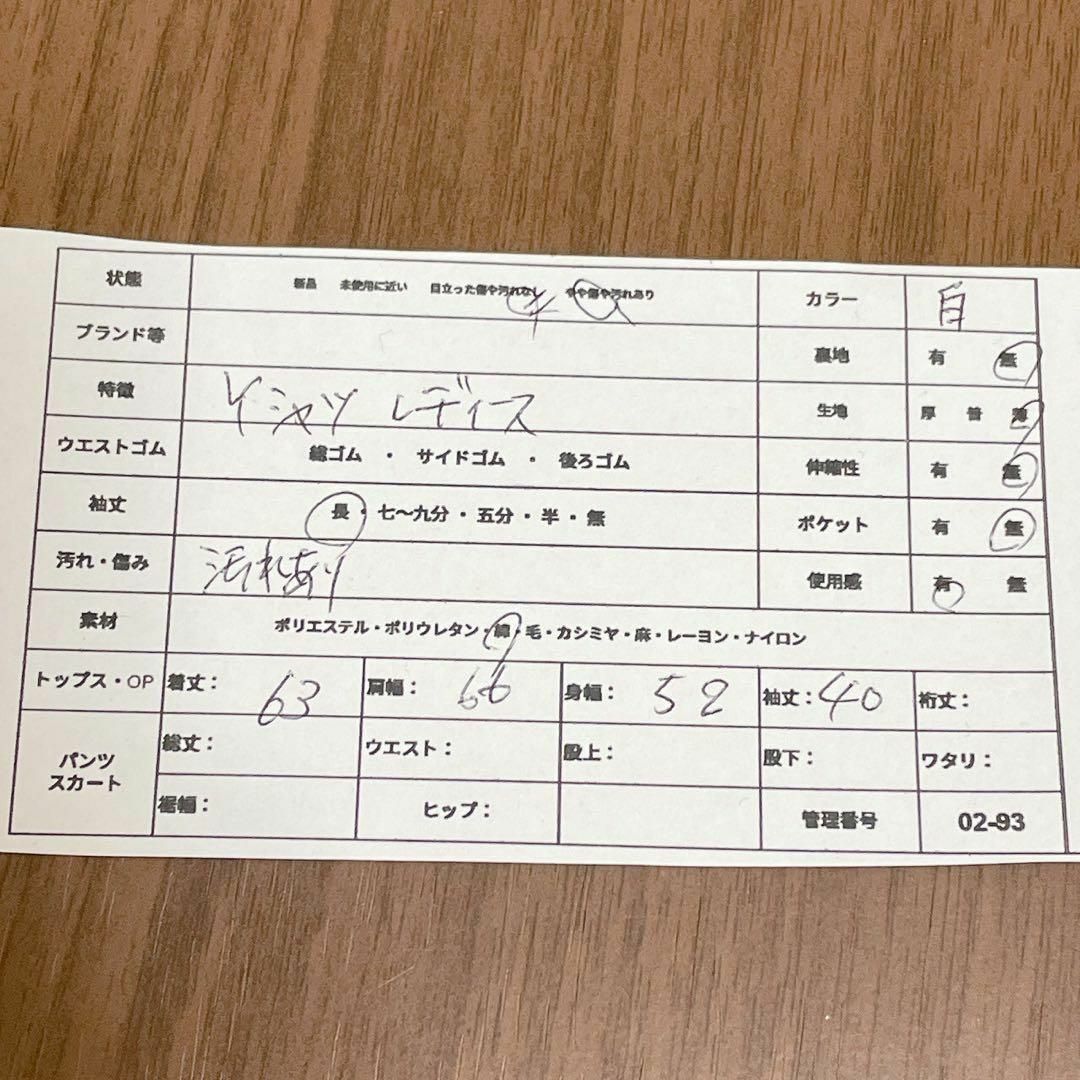 状態 新品 未使用に近い 目立った傷や汚れなし やや傷や汚れあり カラー 白
ブランド等 裏地 有 無
特徴 Yシャツ レディス 生地 厚 普 薄
ウエストゴム 総ゴム ・ サイドゴム ・ 後ろゴム 伸縮性 有 無
袖丈 長・七〜九分・五分・半・無 ポケット 有 無
汚れ・傷み 汚れあり 使用感 有 無
素材 ポリエステル・ポリウレタン・綿・毛・カシミヤ・麻・レーヨン・ナイロン
トップス・OP 着丈: 63 肩幅: 66 身幅: 52 袖丈: 40 裄丈:
パンツ スカート 総丈: ウエスト: 股上: 股下: ワタリ:
裾幅: ヒップ: 管理番号 02-93